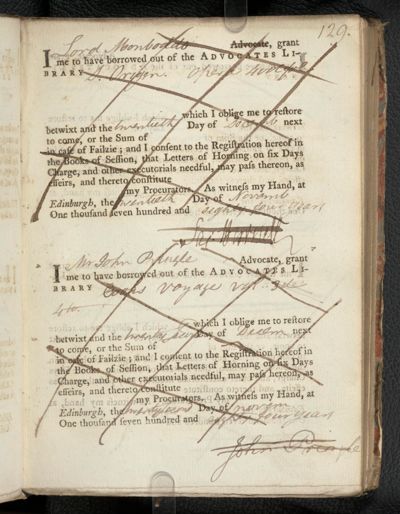 129.
I Lord Monboddo Advocate, grant
me to have borrowed out of the ADVOCATES LI-
BRARY
which I oblige me to reſtore
betwixt and the twentieth Day of Decemb next
to come, or the Sum of
in caſe of Failzie; and I conſent to the Regiſtration hereof in
the Books of Seſſion, that Letters of Horning on ſix Days
Charge, and other executorials needful, may paſs thereon, as
effeirs, and thereto conſtitute
my Procurators. As witneſs my Hand, at
Edinburgh, the twentieth Day of Novemb
One thouſand ſeven hundred and eighty four years
I Mr John Pringle Advocate, grant
me to have borrowed out of the ADVOCATES LI-
BRARY Cooks voyage vol. 2de
4to.
which I oblige me to reſtore
betwixt and the twenty secd Day of Decem next
to come, or the Sum of
in caſe of Failzie; and I conſent to the Regiſtration hereof in
the Books of Seſſion, that Letters of Horning on ſix Days
Charge, and other executorials needful, may paſs thereon, as
effeirs, and thereto conſtitute
my Procurators. As witneſs my Hand, at
Edinburgh, the twentysecond Day of novem
One thouſand ſeven hundred and eighty four years
John Pringle